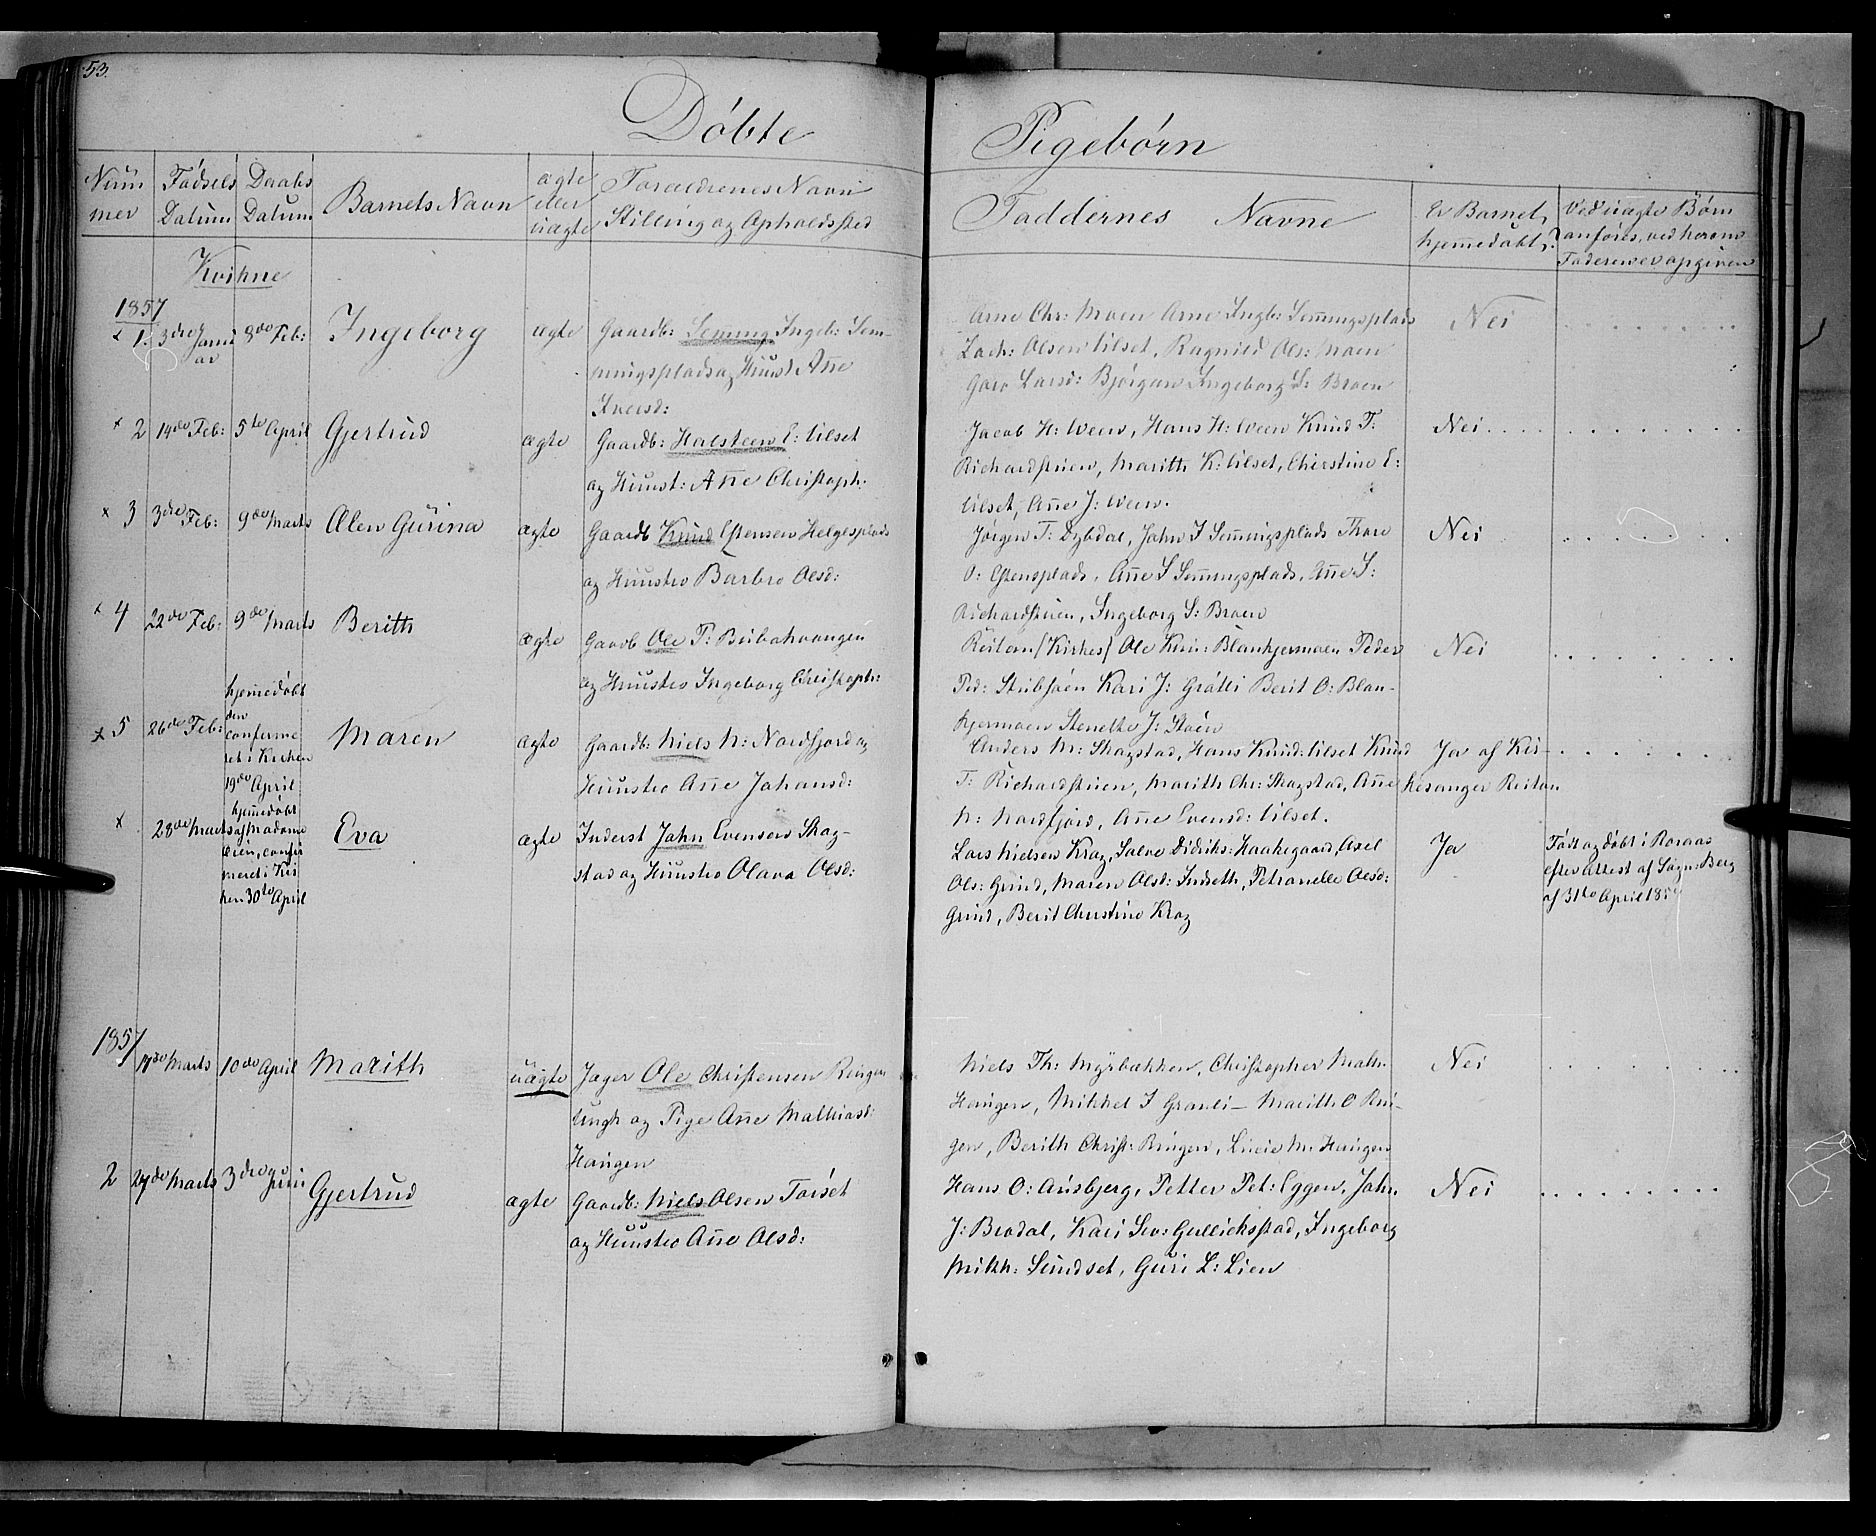 53.
Döbte Pigebörn
Num
mer
Födsels
Datum
Daabs
Datum
Barnets Navn
ægte
eller
uægte
Forældrenes Navn
Stilling og Opholdssted
Faddernes Navne
Er Barnet
hjemedöbt?
Ved uægte Børn
anføres, ved hvem
Faderen er opgiven
Kvikne
1857
1. 3die Janu
ar
8de Feb:
Ingeborg
ægte
Gaardb: Seming Ingeb: Sem-
mingsplads og Hust: Ane
Iversd:
Arne Chr: Moen Arne Ingb: Semingsplads
Zach: Olsen Lilset, Ragnild Ols: Moen
Goro Larsd: Bjørgan Ingeborg S: Broen
Nei
2 14de Feb: 5te April Gjertrud
ægte
Gaardb: Halsteen E: Lilset
og Huust: Ane Christoph:
Jacob H: Veen, Hans H: Veen Knud T:
Richardstuen, Marith K: Lilset, Chirstine E:
Lilset, Ane J: Veen.
Nei
3 3die Feb: 9de Marts Olen Gurina
ægte
Gaardb Knud Estensen Helgesplads
og Huustro Barbro Olsd:
Jørgen T: Dybdal, John I Semingsplads Thore
O: Estensplads, Ane S Semingsplads, Ane S:
Richardstuen, Ingeborg S: Broen
Nei
4 22de Feb: 9de Marts Berith
ægte
Gaardb Ole P: Bubakvangen
og Huustro Ingeborg Christoph:
Reitan (Kirkes) Ole Knu: Blankjermoen Peder
Ped: Stubsöen Kari J: Gråtli Berit O: Blan-
kjermoen Stenette J: Stöen
Nei
5 26de Feb:
hjemedöbt
den
confirme
ret i Kirken
19de April
Maren
ægte
Gaardb: Niels N: Nordfjord og
Huustro Ane Johansd:
Anders M: Skogstad, Hans Knud: Lilset Knud
T: Richardstuen, Marith Chr: Skogstad, Ane
N: Nordfjord, Ane Evensd: Lilset.
Ja af Kir-
kesanger Reitan
28de Marts
hjemedöbt
af Madame
Lien, confir
meret i Kir
ken 30te April
Eva
ægte
Inderst John Evensen Skog-
stad og Huustro Olava Olsd:
Lars Nielsen Krog, Salve Didriks: Haakegaard, Axel
Ols: Grind, Maren Olsd: Indseth, Petronelle Olsd:
Grind, Berit Christine Krog
Ja
Född og döbt i Roraas
efter attest af Sogn: Berg
af 31te April 1857
1857
17de Marts 10de April Marith
uægte
Jæger Ole Christensen Ringen
Ungk og Pige Ane Mathiasd:
Haugen
Niels Th: Myrbakken, Christopher Math:
Haugen, Mikkel J Granli – Marith O Rin-
gen, Berith Christ: Ringen, Lucie M: Haugen
Nei
2 27de Marts 3die Juni Gjertrud
ægte
Gaardb: Niels Olsen Torset
og Huustro Ane Olsd:
Hans O: Ausbjerg, Petter Pet: Eggen, John
J: Brodal, Kari Siv: Gullickstad, Ingeborg
Mikk: Sundset, Guri L: Lien
Nei